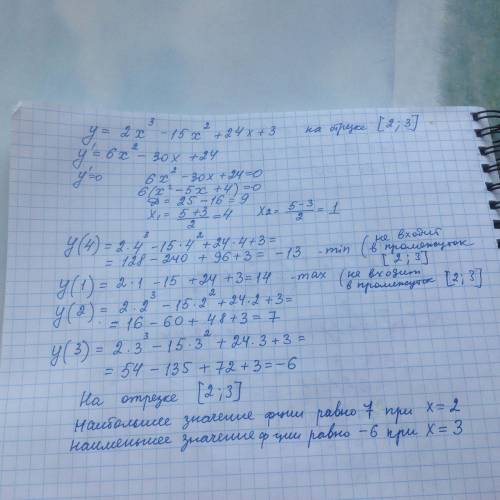 y = 2x³ - 15x² + 24x + 3 на отрезке [2; 3]
y' = 6x² - 30x + 24
y' = 0 6x² - 30x + 24 = 0
6(x² - 5x + 4) = 0
D = 25 - 16 = 9
x₁ = (5+3)/2 = 4 x₂ = (5-3)/2 = 1
y(4) = 2·4³ - 15·4² + 24·4 + 3 =
= 128 - 240 + 96 + 3 = -13 - min (не входит в промежуток [2; 3]
y(1) = 2·1 - 15 + 24 + 3 = 14 - max (не входит в промежуток [2; 3]
y(2) = 2·2³ - 15·2² + 24·2 + 3 =
= 16 - 60 + 48 + 3 = 7
y(3) = 2·3³ - 15·3² + 24·3 + 3 =
= 54 - 135 + 72 + 3 = -6
На отрезке [2; 3]
Наибольшее значение ф-ции равно 7 при x = 2
наименьшее значение ф-ции равно -6 при x = 3